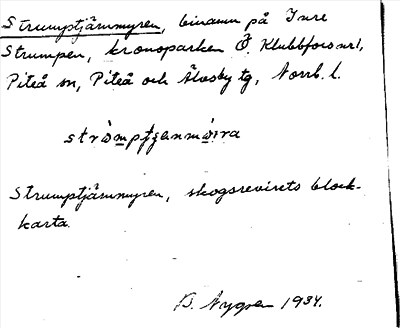 Strumptjärnmyren, binamn på Inre
Strumpen, kronoparken Ö. Klubbfors nr 1,
Piteå sn, Piteå och Älvsby tg, Norrb. l.
Strumptjärnmyren, skogsrevirets block-
karta.
1934.